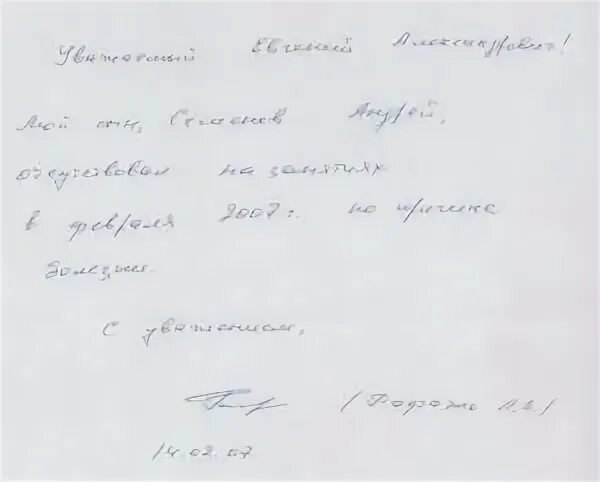 Уважаемый Евгений Александрович!
Мой сын, Семенов Андрей,
отсутствовал на занятиях
в февраля 2007г. по причине
болезни.
С уважением,
14.02.07